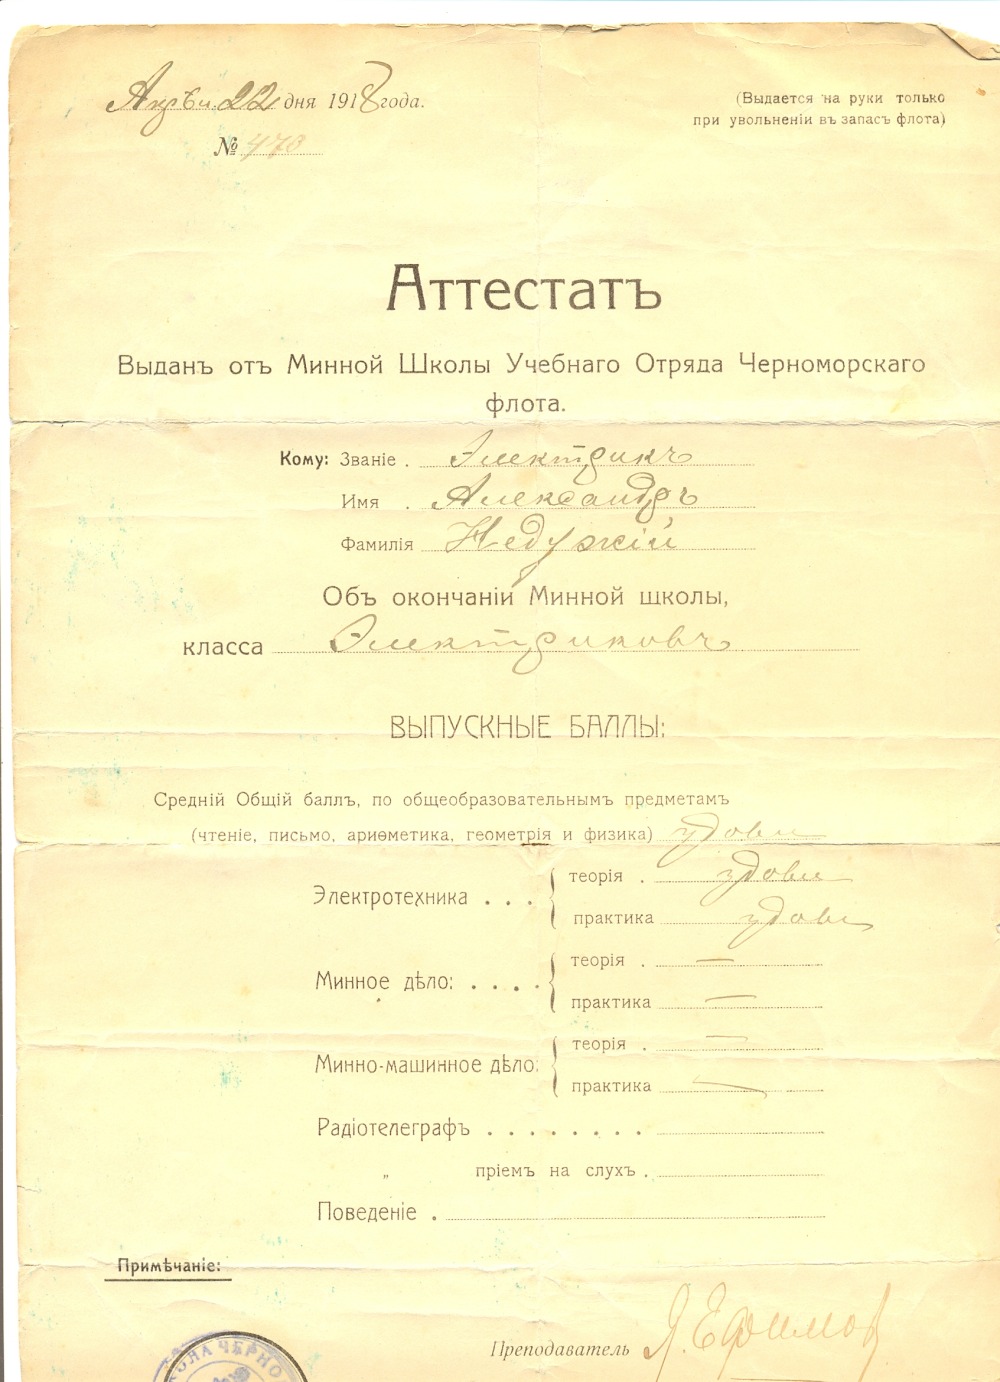 Апрѣл 22 дня 1918 года.
(Выдается на руки только
при увольненіи въ запасъ флота)
№ 470
Аттестатъ
Выданъ отъ Минной Школы Учебнаго Отряда Черноморскаго
флота.
Кому: Званіе . Электрикъ
Имя . Александръ
Фамилія Недужій
Объ окончаніи Минной школы,
класса Электриковъ
ВЫПУСКНЫЕ БАЛЛЫ:
Средній Общій баллъ, по общеобразовательнымъ предметамъ
(чтеніе, письмо, ариѳметика, геометрія и физика) удовл
Электротехника . . . { теорія . удовл
практика удовл
Минное дѣло: . . . . { теорія . —
практика —
Минно-машинное дѣло: { теорія . —
практика —
Радіотелеграфъ . . . . . . . .
„ пріемъ на слухъ .
Поведеніе .
Примѣчаніе:
Преподаватель Я. Ефимов
ОЛА ЧЕРНО